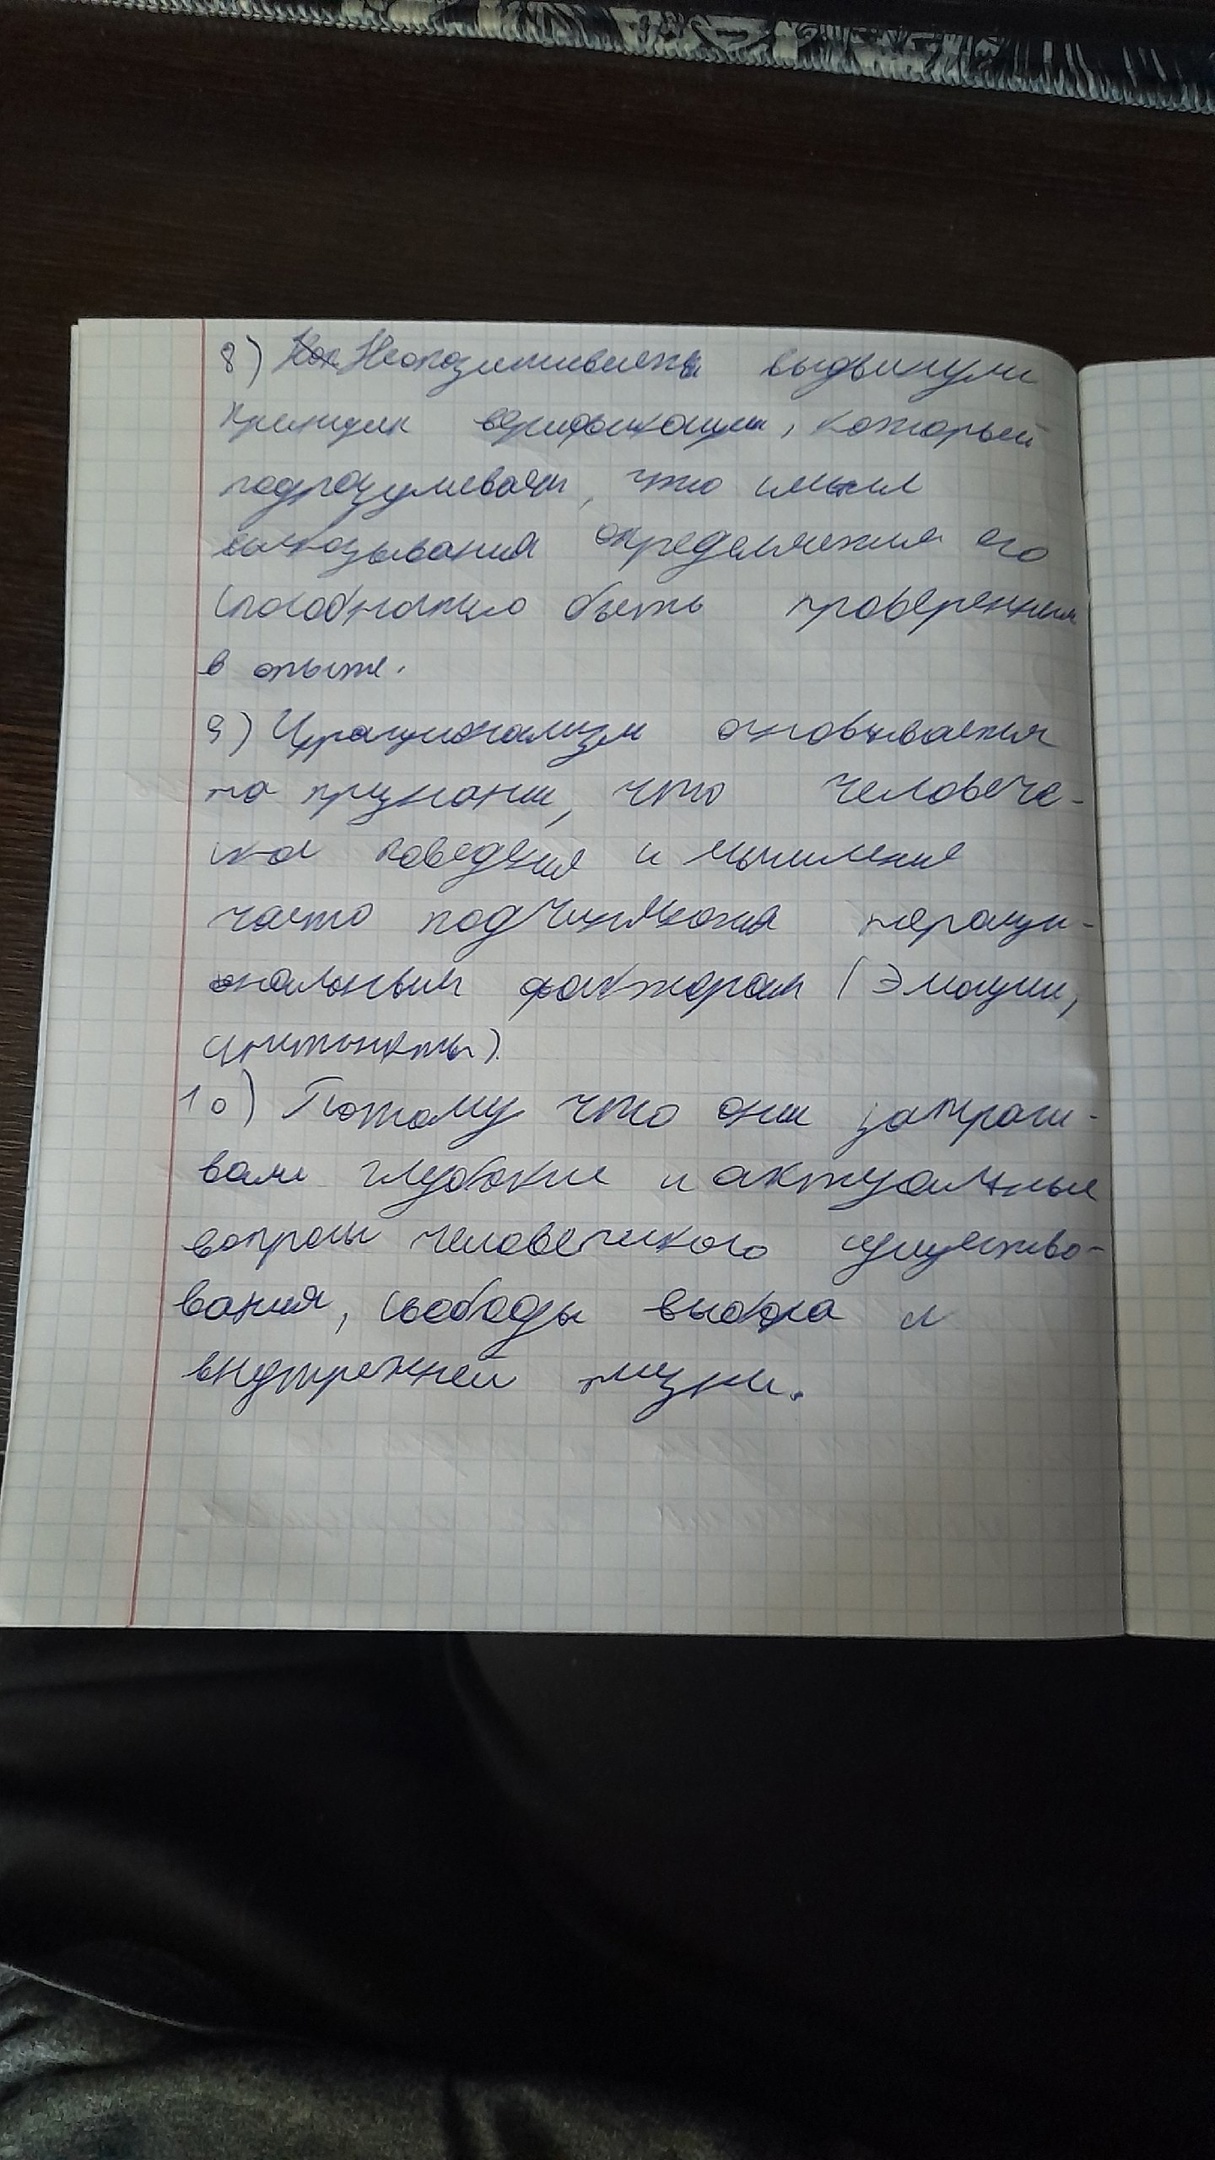 8) Неопозитивисты выдвинули
принцип верификации, который
подразумевает, что смысл
высказывания определяется его
способностью быть проверенным
в опыте.
9) Иррационализм основывается
на признании, что человече-
ское поведение и мышление
часто подчиняются нерацио-
нальным факторам (эмоции,
инстинкты).
10) Потому что они затраги-
вали глубокие и актуальные
вопросы человеческого существо-
вания, свободы выбора и
внутренней жизни.